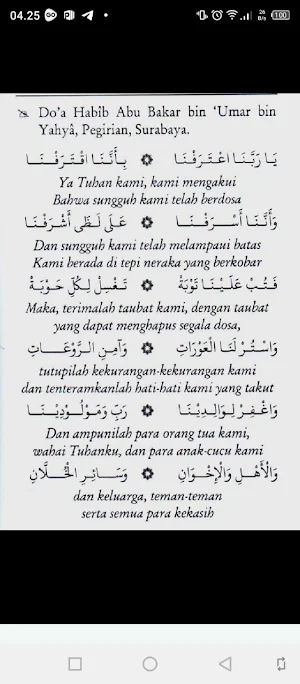 04.25
26 B/s
100
Do'a Habîb Abu Bakar bin 'Umar bin
Yahyâ, Pegirian, Surabaya.
يَا رَبَّنَا اعْتَرَفْنَا ۞ بِأَنَّنَا اقْتَرَفْنَا
Ya Tuhan kami, kami mengakui
Bahwa sungguh kami telah berdosa
وَأَنَّنَا أَسْرَفْنَا ۞ عَلَى لَظَى أَشْرَفْنَا
Dan sungguh kami telah melampaui batas
Kami berada di tepi neraka yang berkobar
فَتُبْ عَلَيْنَا تَوْبَةْ ۞ تَغْسِلْ لِكُلِّ حَوْبَةْ
Maka, terimalah taubat kami, dengan taubat
yang dapat menghapus segala dosa,
وَاسْتُرْ لَنَا الْعَوْرَاتِ ۞ وَآمِنِ الرَّوْعَاتِ
tutupilah kekurangan-kekurangan kami
dan tenteramkanlah hati-hati kami yang takut
وَاغْفِرْ لِوَالِدِيْنَا ۞ رَبِّ وَمَوْلُوْدِيْنَا
Dan ampunilah para orang tua kami,
wahai Tuhanku, dan para anak-cucu kami
وَالْأَهْلِ وَالْإِخْوَانِ ۞ وَسَائِرِ الْخُلَّانِ
dan keluarga, teman-teman
serta semua para kekasih